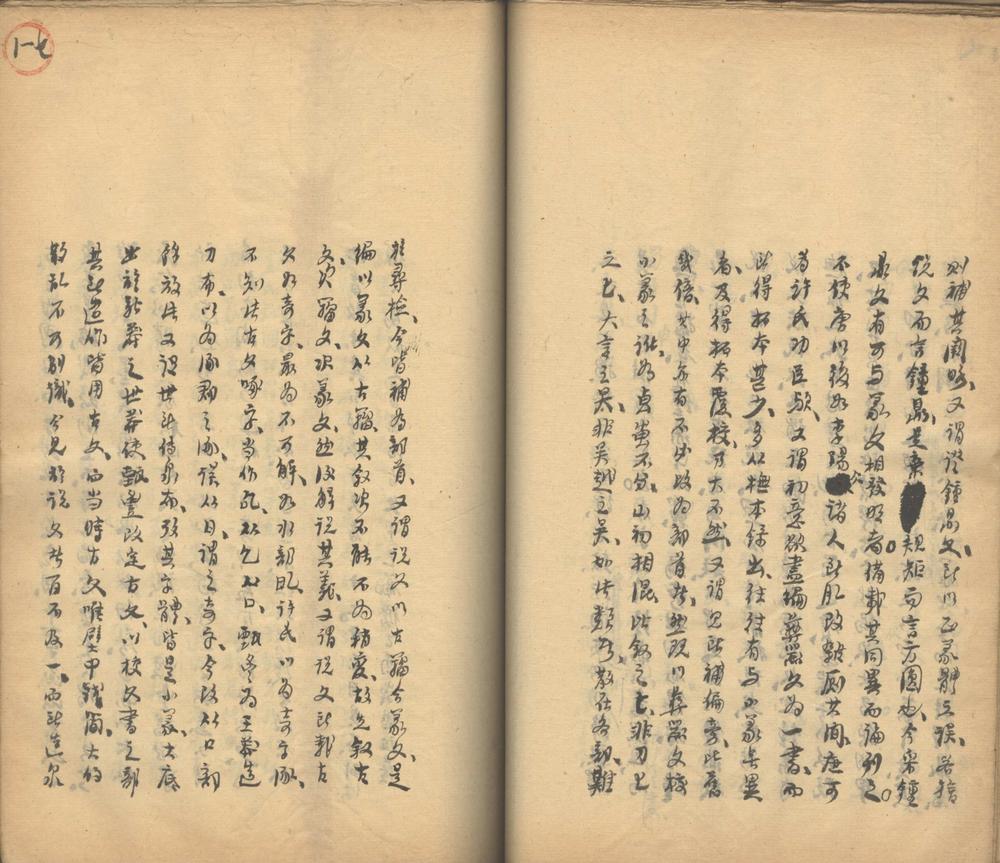 則補其闕略、又謂證鐘鼎文、所以正篆體之誤、若
說文而言鐘鼎、是棄規矩而言方圓也、今宋鐘
鼎文有可與篆文相發明者、備載其同異而論列之、
不使唐以後如李陽冰諸人所肛改雜廁其間、庶可
為許氏功臣歟、又謂初意欲盡編彝器文為一書、而
所得拓本甚少、多從橅本錄出、往往有與小篆無異
者、及得拓本覆校、乃大不然、又謂凡所補偏旁、比舊
幾倍、其中亦有不出改為部首者、然既以彝器文校
小篆之訛、如㞢 不分、山 初相混、此 之上、非刀匕
之匕、大言之吴、非吴越之吴、如此類多、散在各部、難
於尋檢、今皆補為部首、又謂說文以古籀今篆文、是
編以篆文從古籀、其敘次不能不為稍變、故先敘古
文、次籀文、次篆文、然後解說其義、又謂說文所載古
文如奇字、最為不可解、如水部 、許氏以為奇字涿、
不知此古文啄字、當作 、从乙从口、甄豐為王莽造
刀布、以為涿郡之涿、誤从日、謂之奇字、今改从口、部
餘放此、又謂世所傳泉布、孜其字體、皆是小篆、大底
出於新莽之世、莽使甄豐改定古文、以校文書之部、
其所造作、皆用古文、而當時古文唯壁中殘簡、大約
散亂不可別識、今見於說文者百不及一、而所造泉